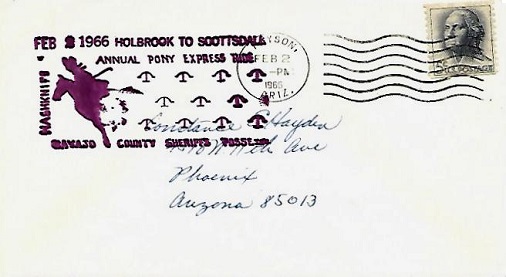 FEB 2 1966 HOLBROOK TO SCOTTSDALE
ANNUAL PONY EXPRESS RIDE
HASHKNIFE
NAVAJO COUNTY SHERIFFS POSSE
PAYSON,
FEB 2
-PM
1966
ARIZ.
5c U.S. POSTAGE
Constance C Hayden
N Ave
Phoenix
Arizona 85013